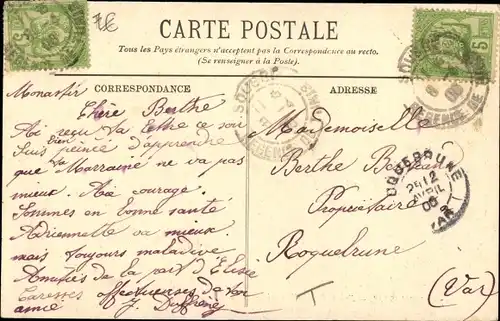 CARTE POSTALE
Tous les Pays étrangers n'acceptent pas la Correspondance au recto.
(Se renseigner à la Poste).
CORRESPONDANCE
ADRESSE
Monastir
Chère Berthe
Ai reçu ta lettre ce soir
Suis bien peinée d'apprendre
que la Marraine ne va pas
mieux. Aie courage.
Sommes en bonne santé
Adrienne va mieux
mais toujours maladive
Amitiés de la part d'Elise
Caresses affectueuses de ton
amie J.
Mademoiselle
Berthe
Propriétaire
Roquebrune
(Var)
ROQUEBRUNE
25 12
AVRIL
06
VAR
SOUSSE
RÉGENCE DE
5
5
T
7€